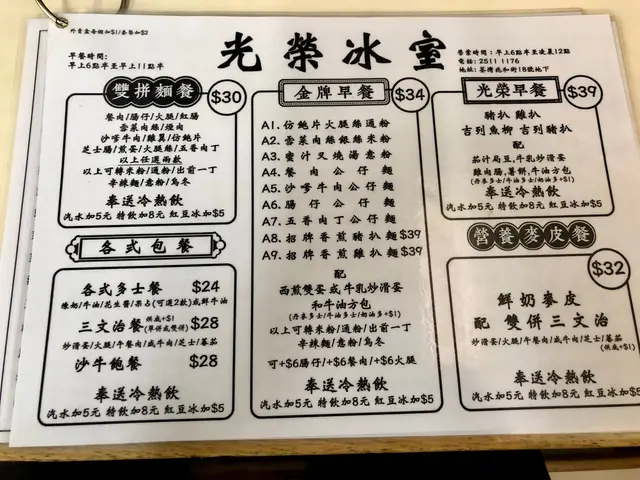 外賣盒每個加$1/套餐加$2
早餐時間:
早上6點半至早上11點半
光榮冰室
營業時間:早上6點半至凌晨12點
電話: 2511 1176
地址: 荃灣兆和街18號地下
雙拼麵餐 $30
餐肉/腸仔/火腿/紅腸
雪菜肉絲/煙肉
沙嗲牛肉/雞翼/仿鮑片
芝士腸/煎蛋/火腿絲/五香肉丁
以上任選兩款
以上可轉米粉/通粉/出前一丁
辛辣麵/意粉/烏冬
奉送冷熱飲
汽水加5元 特飲加8元 紅豆冰加$5
各式包餐
各式多士餐 $24
煉奶/牛油/花生醬/果占(可選2款)或鮮牛油
三文治餐 烘底+$1 (單併或雙併) $28
炒滑蛋/火腿/午餐肉/咸牛肉/芝士/蕃茄
沙牛飽餐 $28
奉送冷熱飲
汽水加5元 特飲加8元 紅豆冰加$5
金牌早餐 $34
A1. 仿鮑片火腿絲通粉
A2. 雪菜肉絲銀絲米粉
A3. 蜜汁叉燒湯意粉
A4. 餐肉公仔麵
A5. 沙嗲牛肉公仔麵
A6. 腸仔公仔麵
A7. 五香肉丁公仔麵
A8. 招牌香煎豬扒麵 $39
A9. 招牌香煎雞扒麵 $39
配
西煎雙蛋或牛乳炒滑蛋
和牛油方包
(丹麥多士/牛油多士/奶油多+$1)
以上可轉米粉/通粉/出前一丁
辛辣麵/意粉/烏冬
可+$6腸仔/+$6餐肉/+$6火腿
奉送冷熱飲
汽水加5元 特飲加8元 紅豆冰加$5
光榮早餐 $39
豬扒 雞扒
吉列魚柳 吉列豬扒
配
茄汁焗豆,牛乳炒滑蛋
雞肉腸,薯餅,牛油方包
(丹麥多士/牛油多士/奶油多士+$1)
奉送冷熱飲
汽水加5元 特飲加8元 紅豆冰加$5
營養麥皮餐
$32
鮮奶麥皮
配 雙併三文治
炒滑蛋/火腿/午餐肉/咸牛肉/芝士/蕃茄
(烘底+$1)
奉送冷熱飲
汽水加5元 特飲加8元 紅豆冰加$5